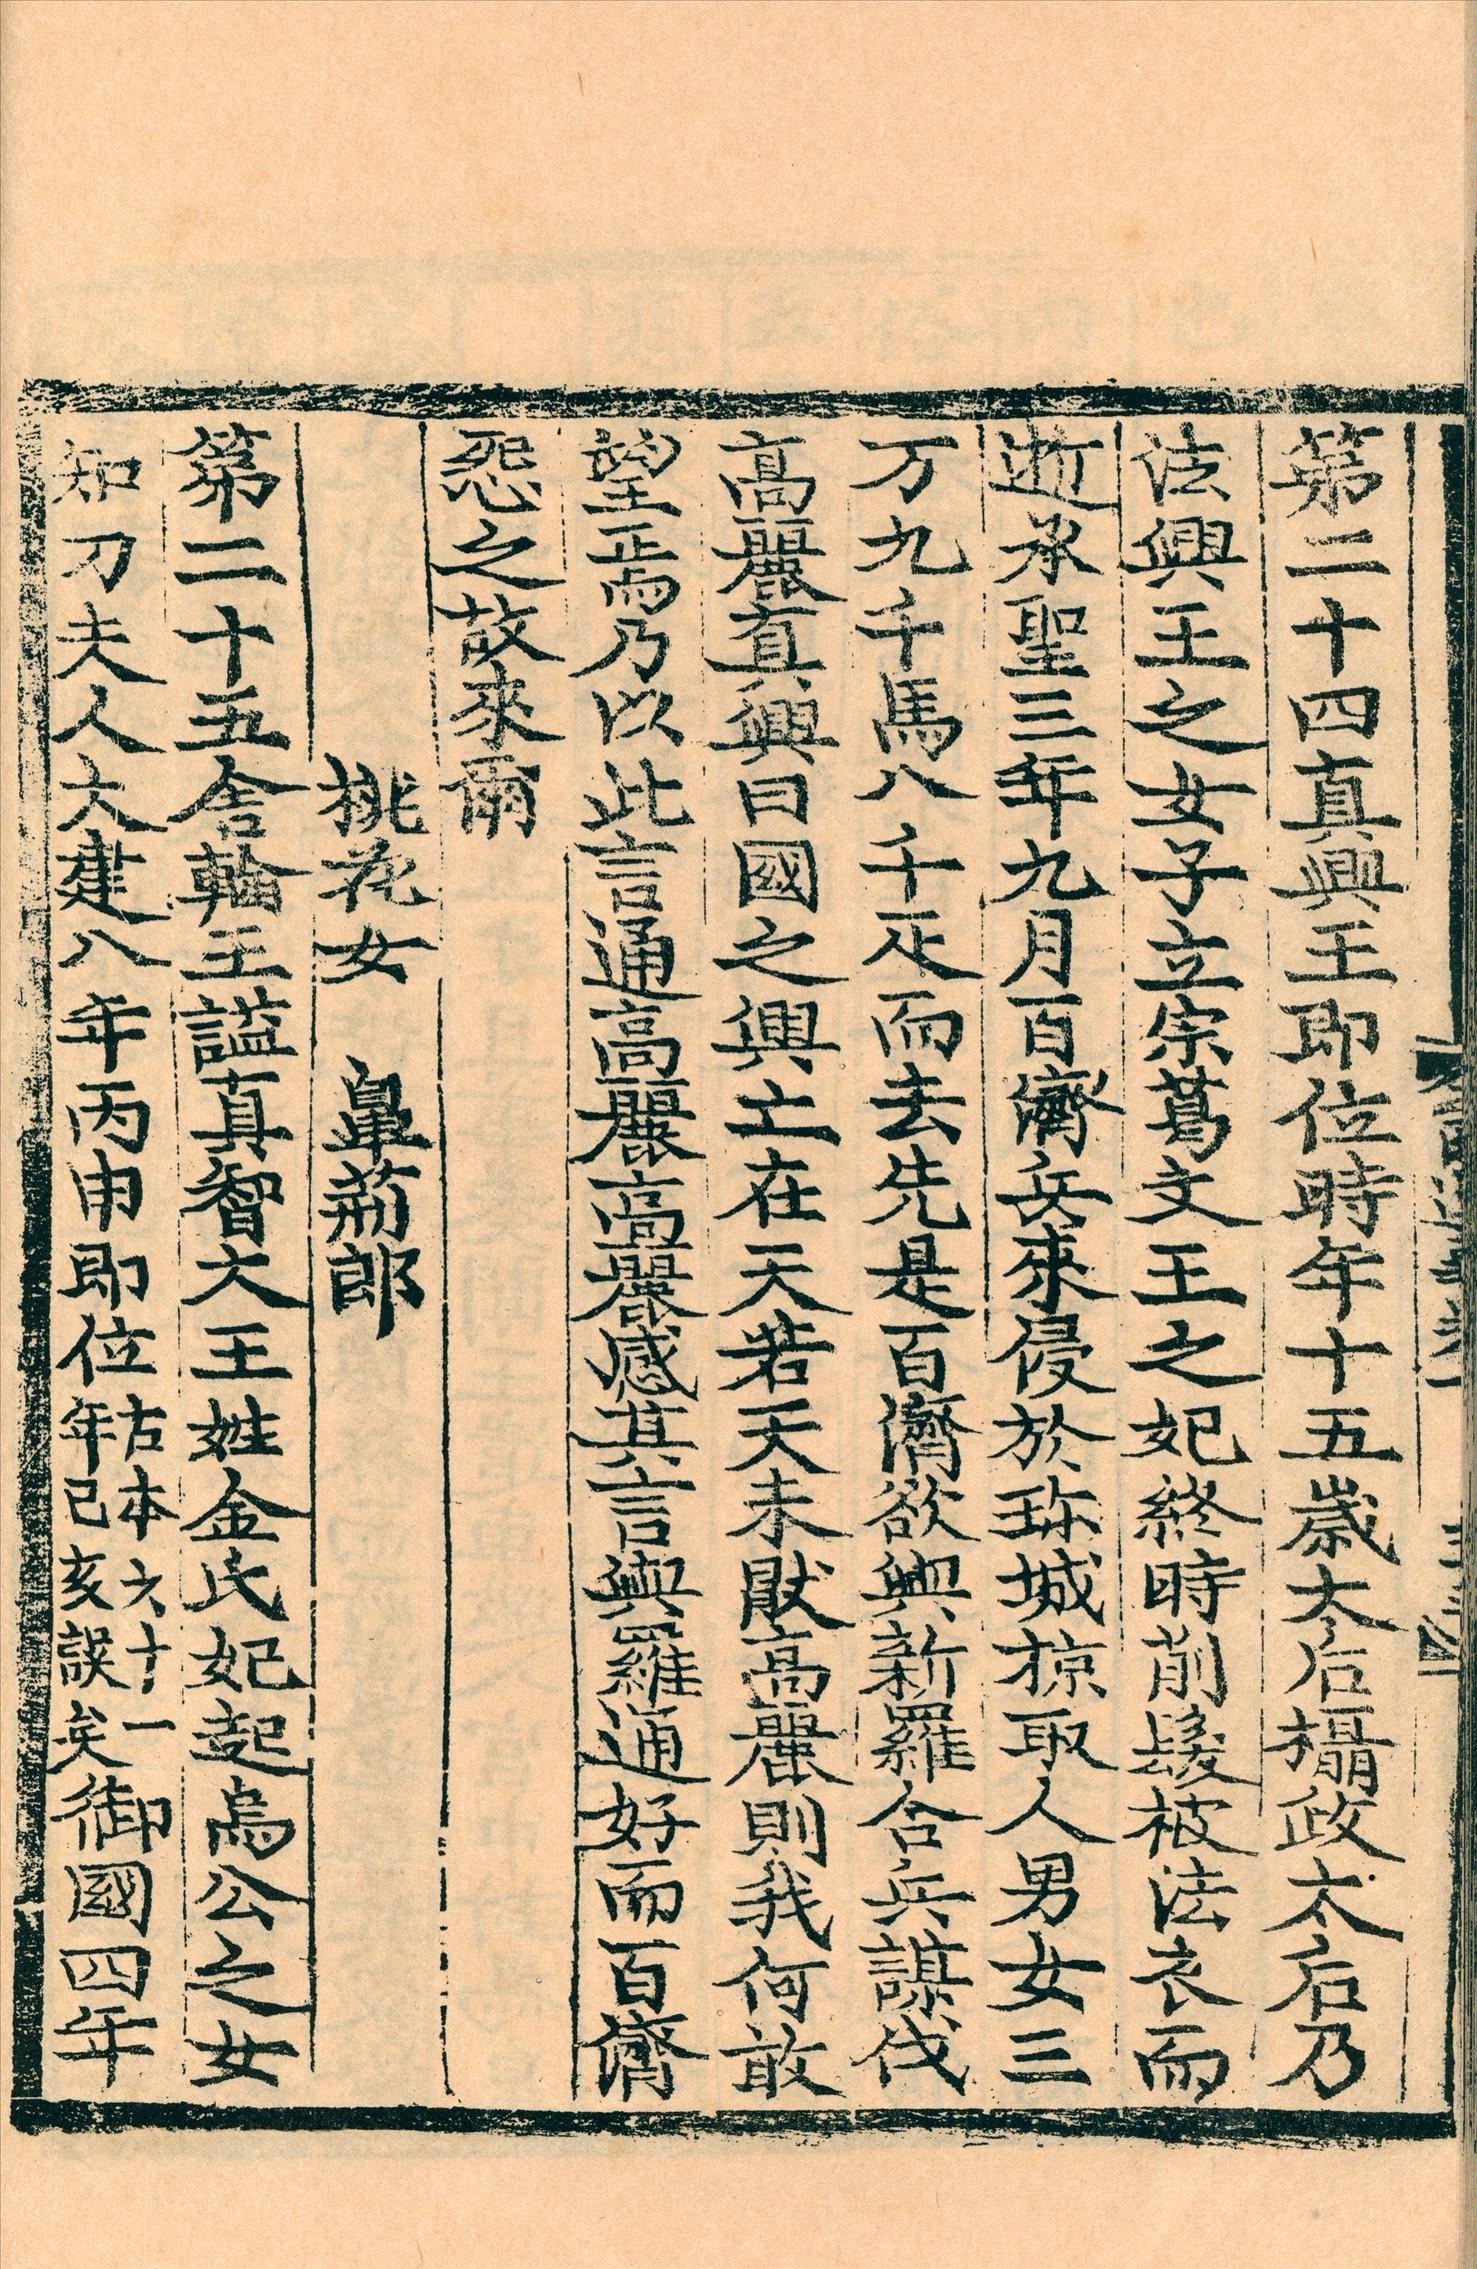 第二十四真興王即位時年十五歲太后攝政太后乃
法興王之女子立宗葛文王之妃終時削髮被法衣而
逝承聖三年九月百濟兵來侵於珍城掠取人男女三
万九千馬八千疋而去先是百濟欲與新羅合兵謀伐
高麗真興曰國之興亡在天若天未猒高麗則我何敢
望焉乃以此言通高麗高麗感其言與羅通好而百濟
怨之故來爾
桃花女 鼻荊郎
第二十五舍輪王謚真智大王姓金氏妃起烏公之女
知刀夫人大建八年丙申即位古本云十一年己亥誤矣御國四年